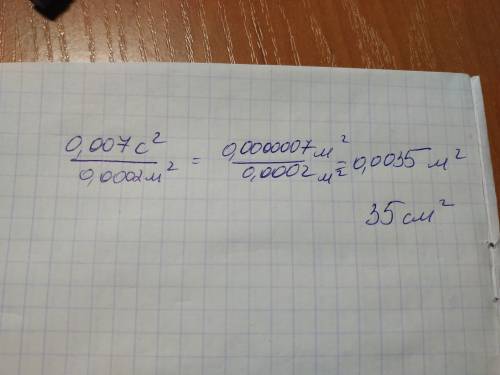 0,007с² / 0,0002м² = 0,0000007м² / 0,0002м² = 0,0035 м²
35см²